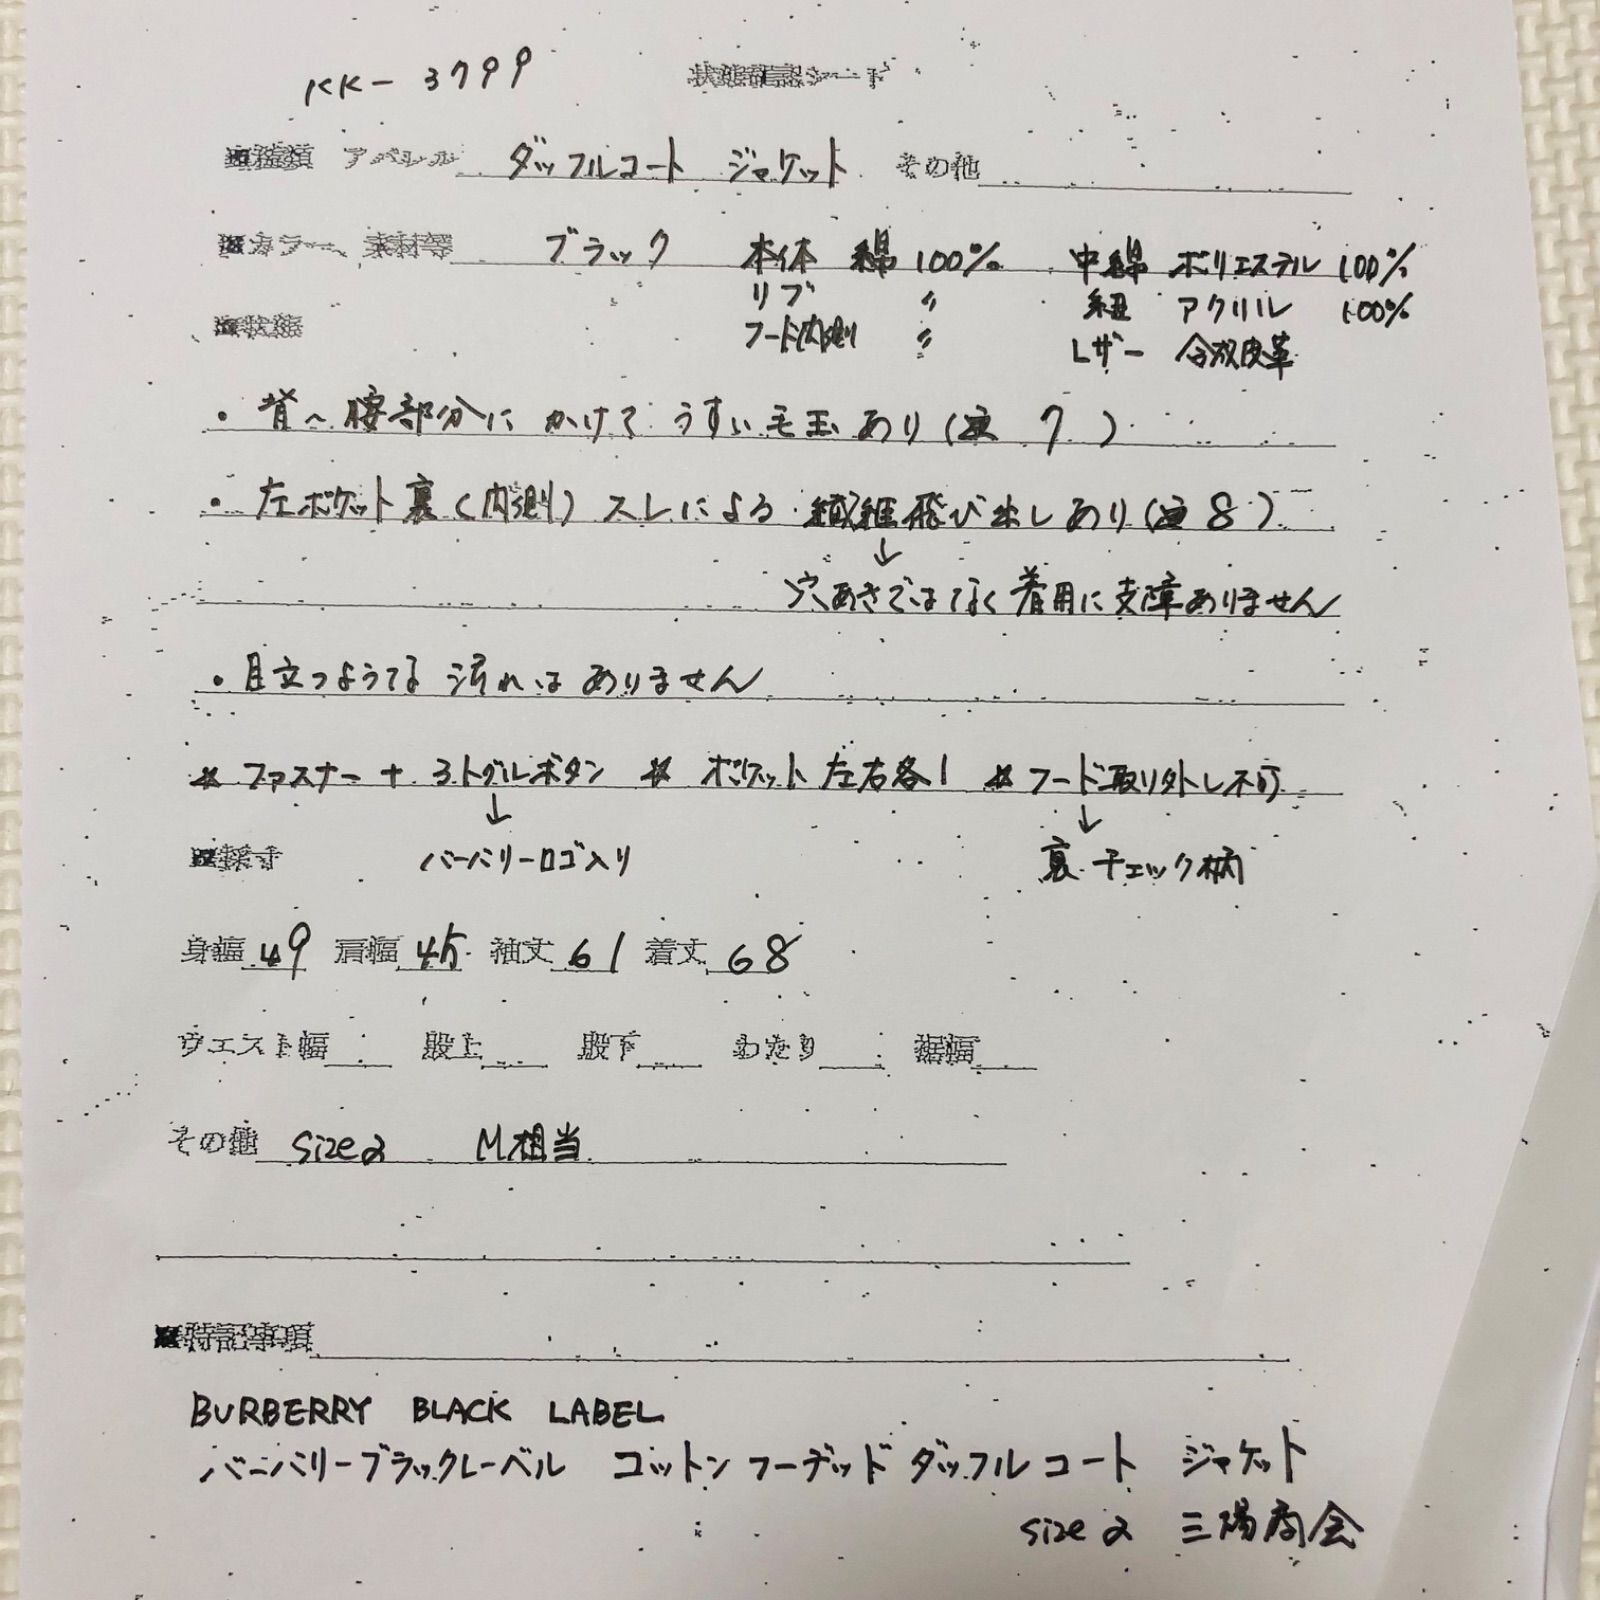 KK-3799 状態確認シート
■種類 アパレル ダッフルコート ジャケット その他
■カラー、素材等 ブラック 本体 綿 100% 中綿 ポリエステル 100%
リブ 〃 紐 アクリル 100%
■状態 フード内側 〃 レザー 合成皮革
・背~腰部分にかけて うすい毛玉あり( 7 )
・左ポケット裏(内側)スレによる 繊維飛び出しあり( 8 )
↓
穴あきではなく着用に支障ありません
・目立つような汚れはありません
* ファスナー+3トグルボタン * ポケット左右各1 * フード取り外し不可
↓ ↓
■採寸 バーバリーロゴ入り 裏 チェック柄
身幅 49 肩幅 45 袖丈 61 着丈 68
ウエスト幅 股上 股下 わたり 裾幅
その他 size2 M相当
■特記事項
BURBERRY BLACK LABEL
バーバリーブラックレーベル コットン フーデッド ダッフルコート ジャケット
size2 三陽商会